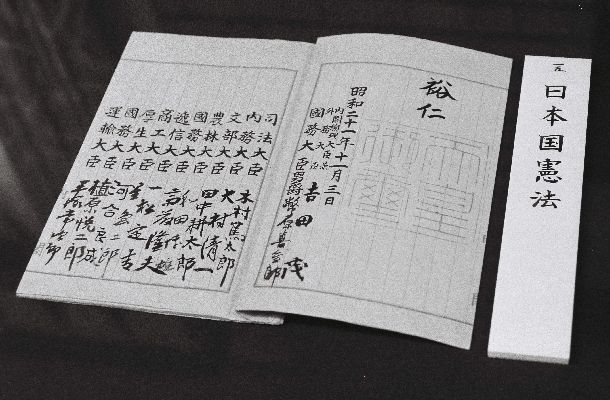 日本国憲法
裕仁
昭和二十一年十一月三日
内閣総理大臣兼
外務大臣 吉田茂
国務大臣 男爵 幣原喜重郎
司法大臣 木村篤太郎
内務大臣 大村清一
文部大臣 田中耕太郎
農林大臣 和田博雄
国務大臣 斎藤隆夫
逓信大臣 一松定吉
商工大臣 星島二郎
厚生大臣 河合良成
国務大臣 植原悦二郎
運輸大臣 平塚常次郎